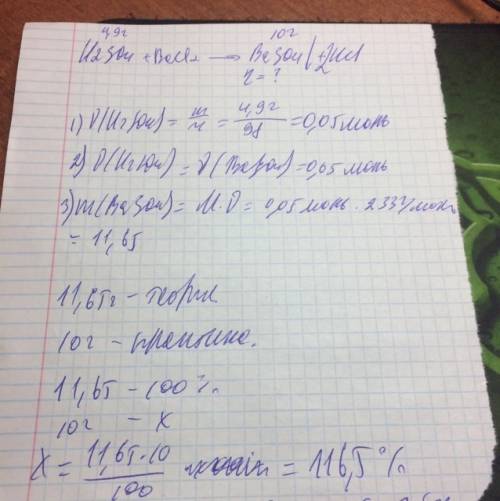 4,9г 10г
H2SO4 + BaCl2 → BaSO4↓ + 2HCl
η = ?
1) ν(H2SO4) = m/M = 4,9г/98 = 0,05 моль
2) ν(H2SO4) = ν(BaSO4) = 0,05 моль
3) m(BaSO4) = M·ν = 0,05 моль · 233 г/моль
= 11,65
11,65г – теория
10г – практика.
11,65 – 100%
10г – x
X = 11,65·10/100 = 116,5%